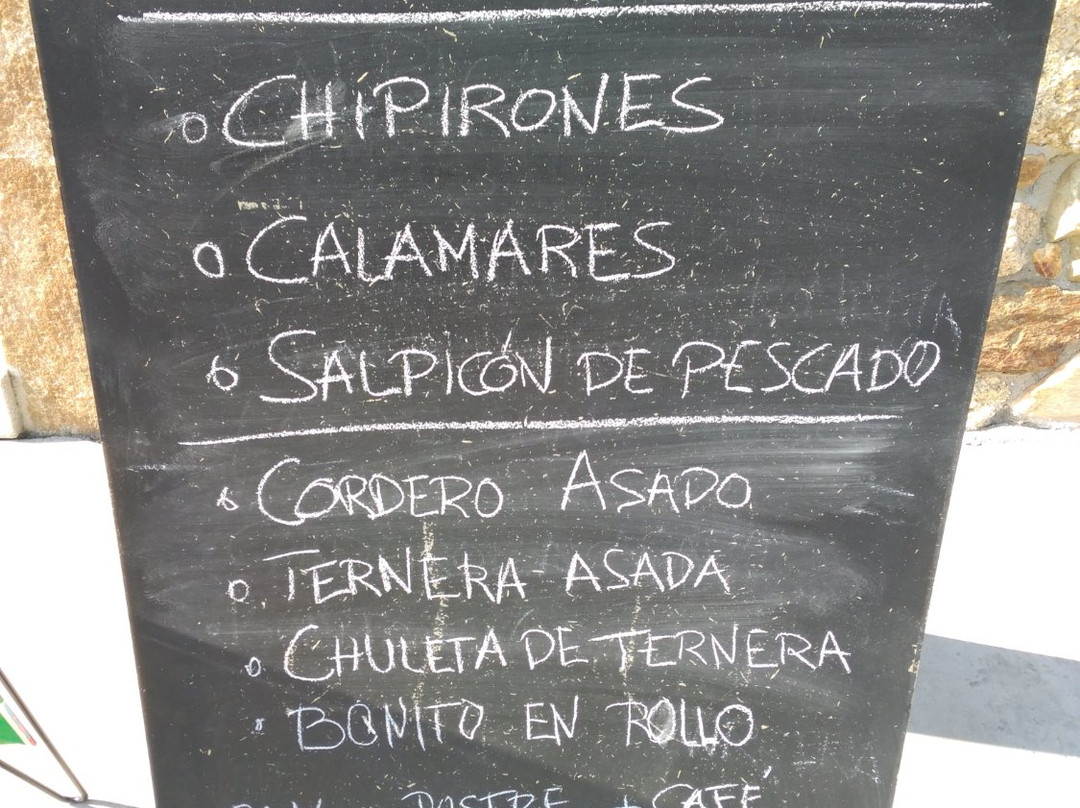 CHIPIRONES
CALAMARES
SALPICÓN DE PESCADO
CORDERO ASADO
TERNERA ASADA
CHULETA DE TERNERA
BONITO EN ROLLO
POSTRE + CAFÉ